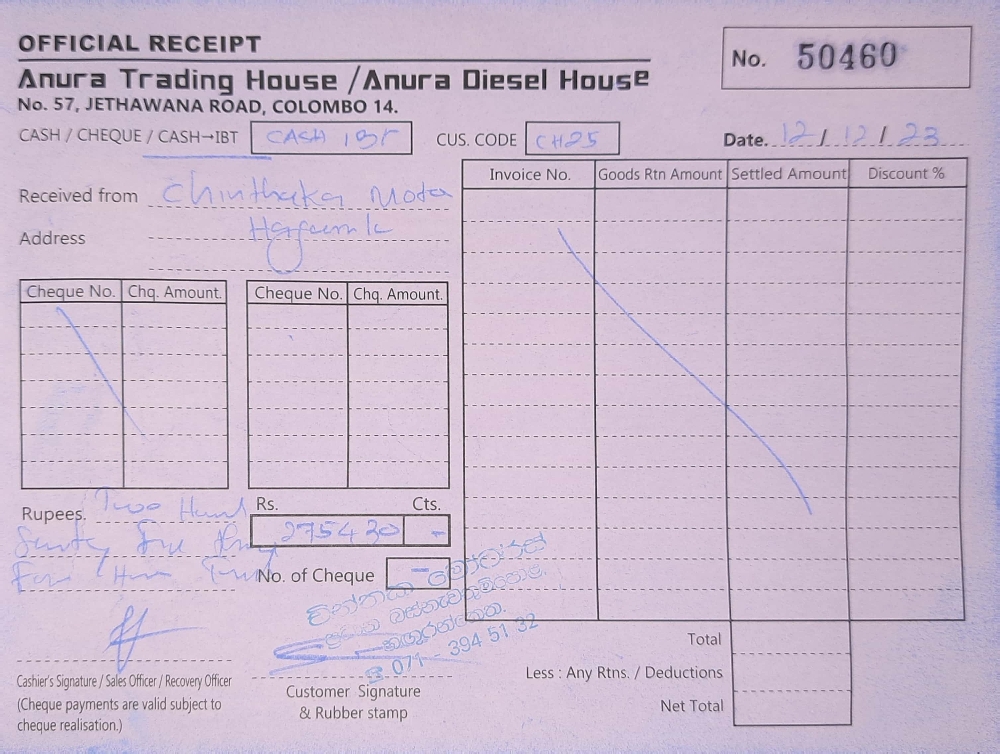 OFFICIAL RECEIPT
No. 50460
Anura Trading House / Anura Diesel House
No. 57, JETHAWANA ROAD, COLOMBO 14.
CASH / CHEQUE / CASH→IBT CASH IBT CUS. CODE CH25 Date. 12 / 12 / 23
Received from Chinthaka Motor
Address
Invoice No. Goods Rtn Amount Settled Amount Discount %
Cheque No. Chq. Amount. Cheque No. Chq. Amount.
Rupees. Two Hund
Rs. Cts.
275430 -
No. of Cheque -
චින්තක මෝටර්ස්
071 - 394 51 32
Cashier's Signature / Sales Officer / Recovery Officer
(Cheque payments are valid subject to
cheque realisation.)
Customer Signature
& Rubber stamp
Total
Less : Any Rtns. / Deductions
Net Total